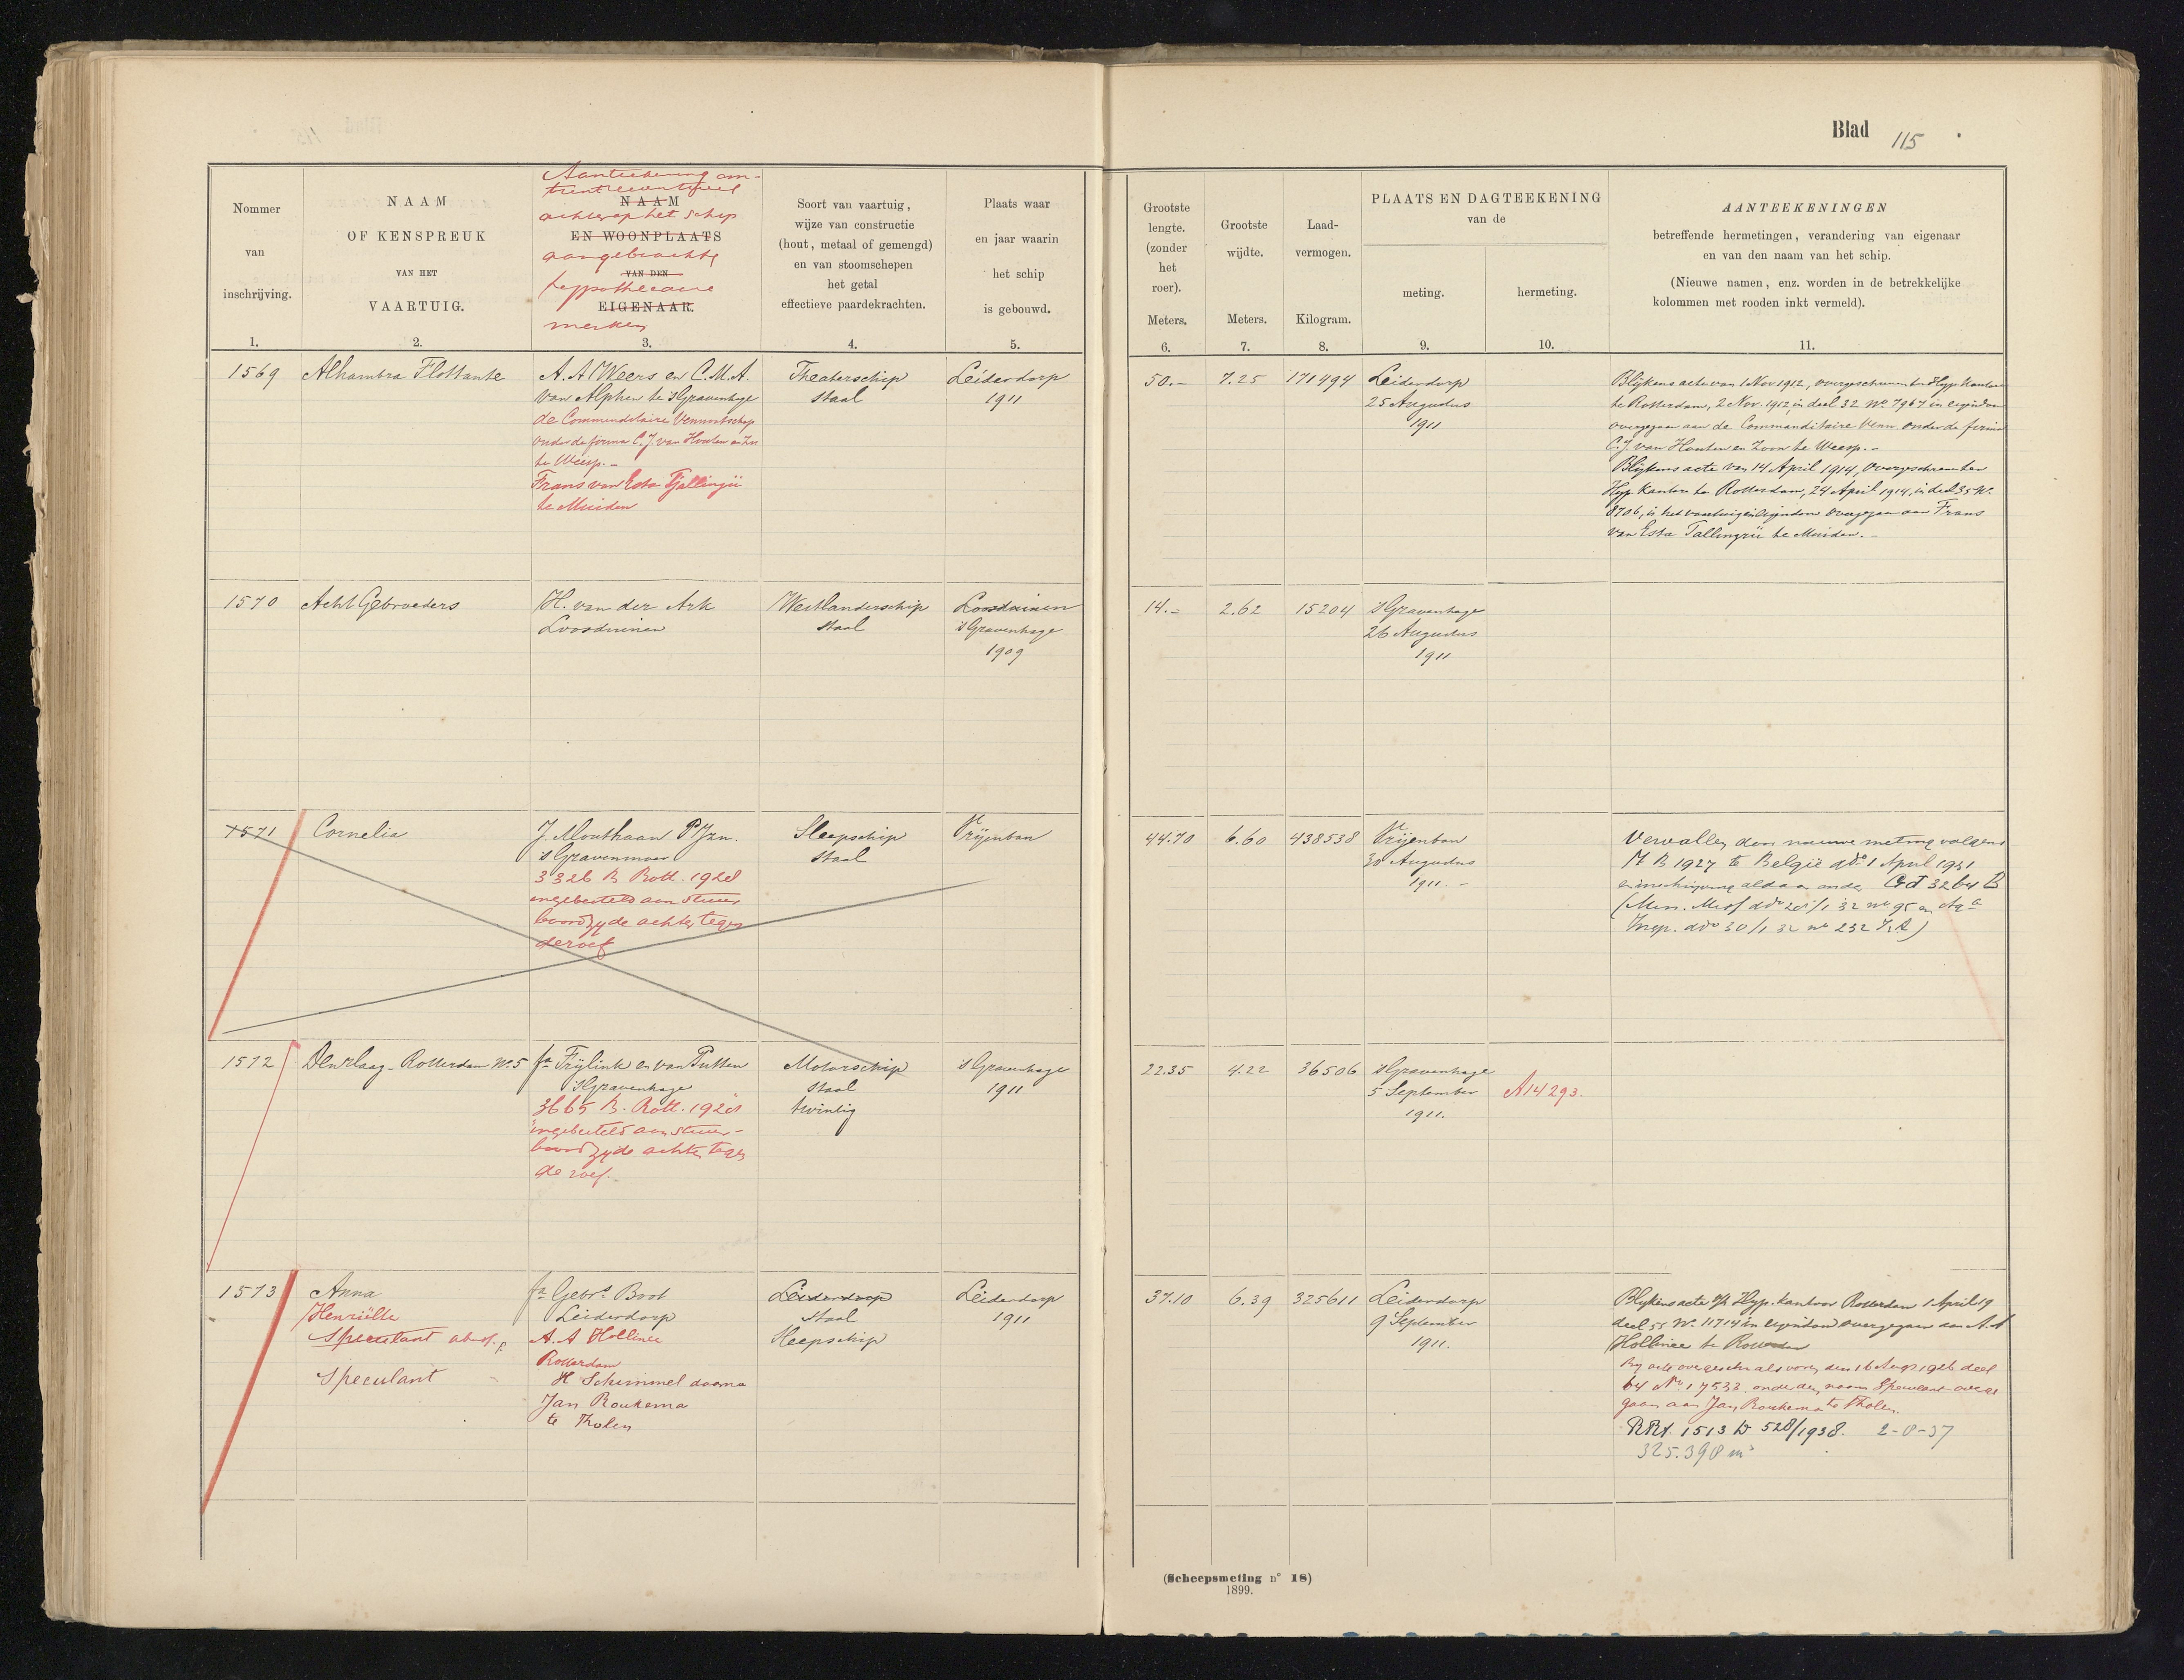 Blad 115.
Nommer
van
inschrijving.
1.
NAAM
OF KENSPREUK
VAN HET
VAARTUIG.
2.
Aanteekening om-
trent eventueel
NAAM
achterop het schip
EN WOONPLAATS
aangebrachte
VAN DEN
hypothecaire
EIGENAAR.
merken
3.
Soort van vaartuig,
wijze van constructie
(hout, metaal of gemengd)
en van stoomschepen
het getal
effectieve paardekrachten.
4.
Plaats waar
en jaar waarin
het schip
is gebouwd.
5.
Grootste
lengte.
(zonder
het
roer).
Meters.
6.
Grootste
wijdte.
Meters.
7.
Laad-
vermogen.
Kilogram.
8.
PLAATS EN DAGTEEKENING
van de
meting.
9.
hermeting.
10.
AANTEEKENINGEN
betreffende hermetingen, verandering van eigenaar
en van den naam van het schip.
(Nieuwe namen, enz. worden in de betrekkelijke
kolommen met rooden inkt vermeld).
11.
1569
Alhambra Flottante
A. A. Weers en C. M. A.
van Alphen te 's Gravenhage
de Commanditaire Vennootschap
onder de firma C. J. van Houten en Zn
te Weesp. -
Frans van Esta Tjallingii
te Muiden
Theaterschip
Staal
Leiderdorp
1911
50.-
7.25
171494
Leiderdorp
25 Augustus
1911
Blijkens acte van 1 Nov 1912, overgeschreven ten Hyp. Kantore
te Rotterdam, 2 Nov. 1912, in deel 32 No. 7967 in eigendom
overgegaan aan de Commanditaire Venn. onder de firma
C. J. van Houten en Zoon te Weesp. -
Blijkens acte van 14 April 1914, overgeschreven ten
Hyp. Kantore te Rotterdam, 24 April 1914, in deel 35 No.
8706, is het vaartuig in eigendom overgegaan aan Frans
van Esta Tallingii te Muiden. -
1570
Acht Gebroeders
H. van der Ark
Loosduinen
Westlanderschip
Staal
Loosduinen
's Gravenhage
1909
14.-
2.62
15204
's Gravenhage
26 Augustus
1911
1571
Cornelia
J. Mouthaan PJzn.
's Gravenmoer
3326 B Rott. 1928
ingebeiteld aan stuur
boordzijde achter tegen
de roef
Sleepschip
Staal
Vrijenban
44.70
6.60
438538
Vrijenban
30 Augustus
1911. -
Vervallen door nieuwe meting volgens
M B 1927 te België ddo 1 April 1931
en inschrijving aldaar onder Gd 3264 B
(Min. Miss ddo 28/1 32 no 95 en
Insp. ddo 30/1 32 no 232 )
1572
Den Haag - Rotterdam No. 5
fa Frijlink en van Putten
's Gravenhage
3665 B. Rott. 1928
ingebeiteld aan stuur-
boordzijde achter tegen
de roef. -
Motorschip
Staal
twintig
's Gravenhage
1911
22.35
4.22
36506
's Gravenhage
5 September
1911.
A14293.
1573
Anna
Henriëtte
Speculant
Speculant
fa Gebrs. Boot
Leiderdorp
A. A Hollinee
Rotterdam
H Schimmel daarna
Jan Roukema
te Tholen
Leiderdorp
Staal
Sleepschip
Leiderdorp
1911
37.10
6.39
325611
Leiderdorp
9 September
1911.
Blijkens acte Hyp. kantoor Rotterdam 1 April 19
deel 55 No. 11714 in eigendom overgegaan aan A. A
Hollinee te Rotterdam
Bij acte overgeschr als voren den 16 Aug. 1926 deel
64 No 17533 onder den naam Speculant overge
gaan aan Jan Roukema te Tholen.
RRt 1513 D 528/1938. 2-8-37
325.398 m³
(Scheepsmeting n° 18)
1899.